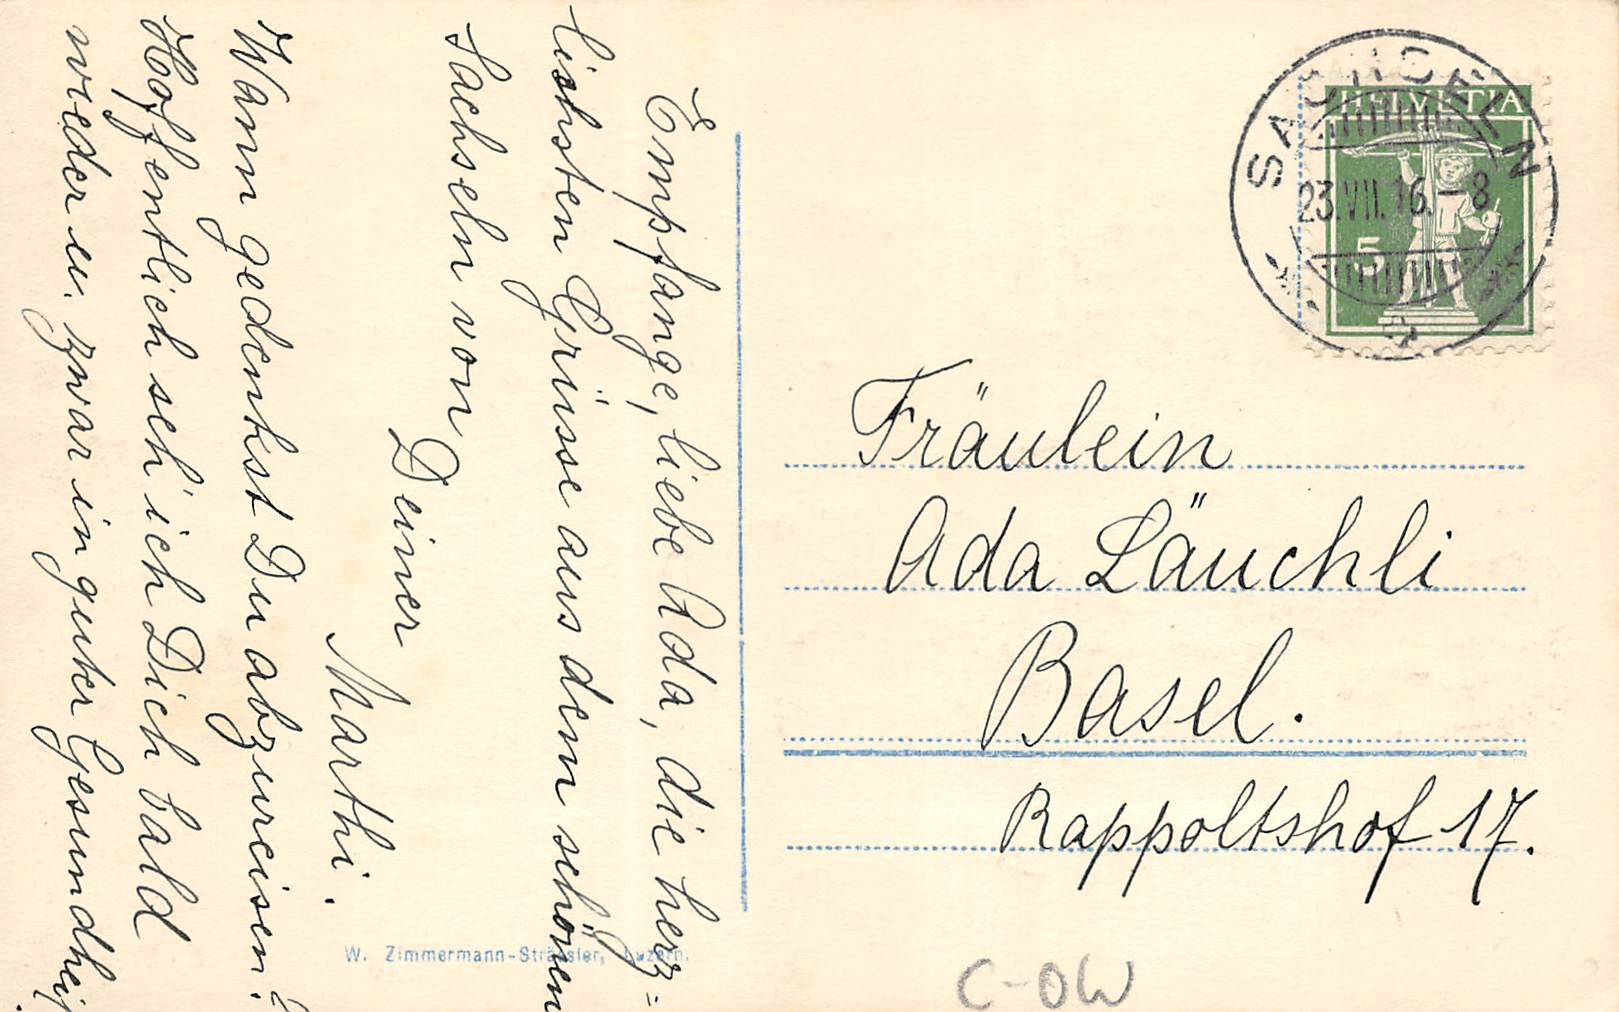 Empfange, liebe Ada, die herz=
lichsten Grüsse aus dem schönen
Sachseln von
Deiner
Marthi.
Wann gedenkst Du abzureisen?
Hoffentlich seh' ich Dich bald
wieder u. zwar in guter Gesundheit.
W. Zimmermann-Strässler, Luzern.
HELVETIA
5
SACHSELN
23.VII.16.-8
Fräulein
Ada Läuchli
Basel.
Rappoltshof 17.
C-OW